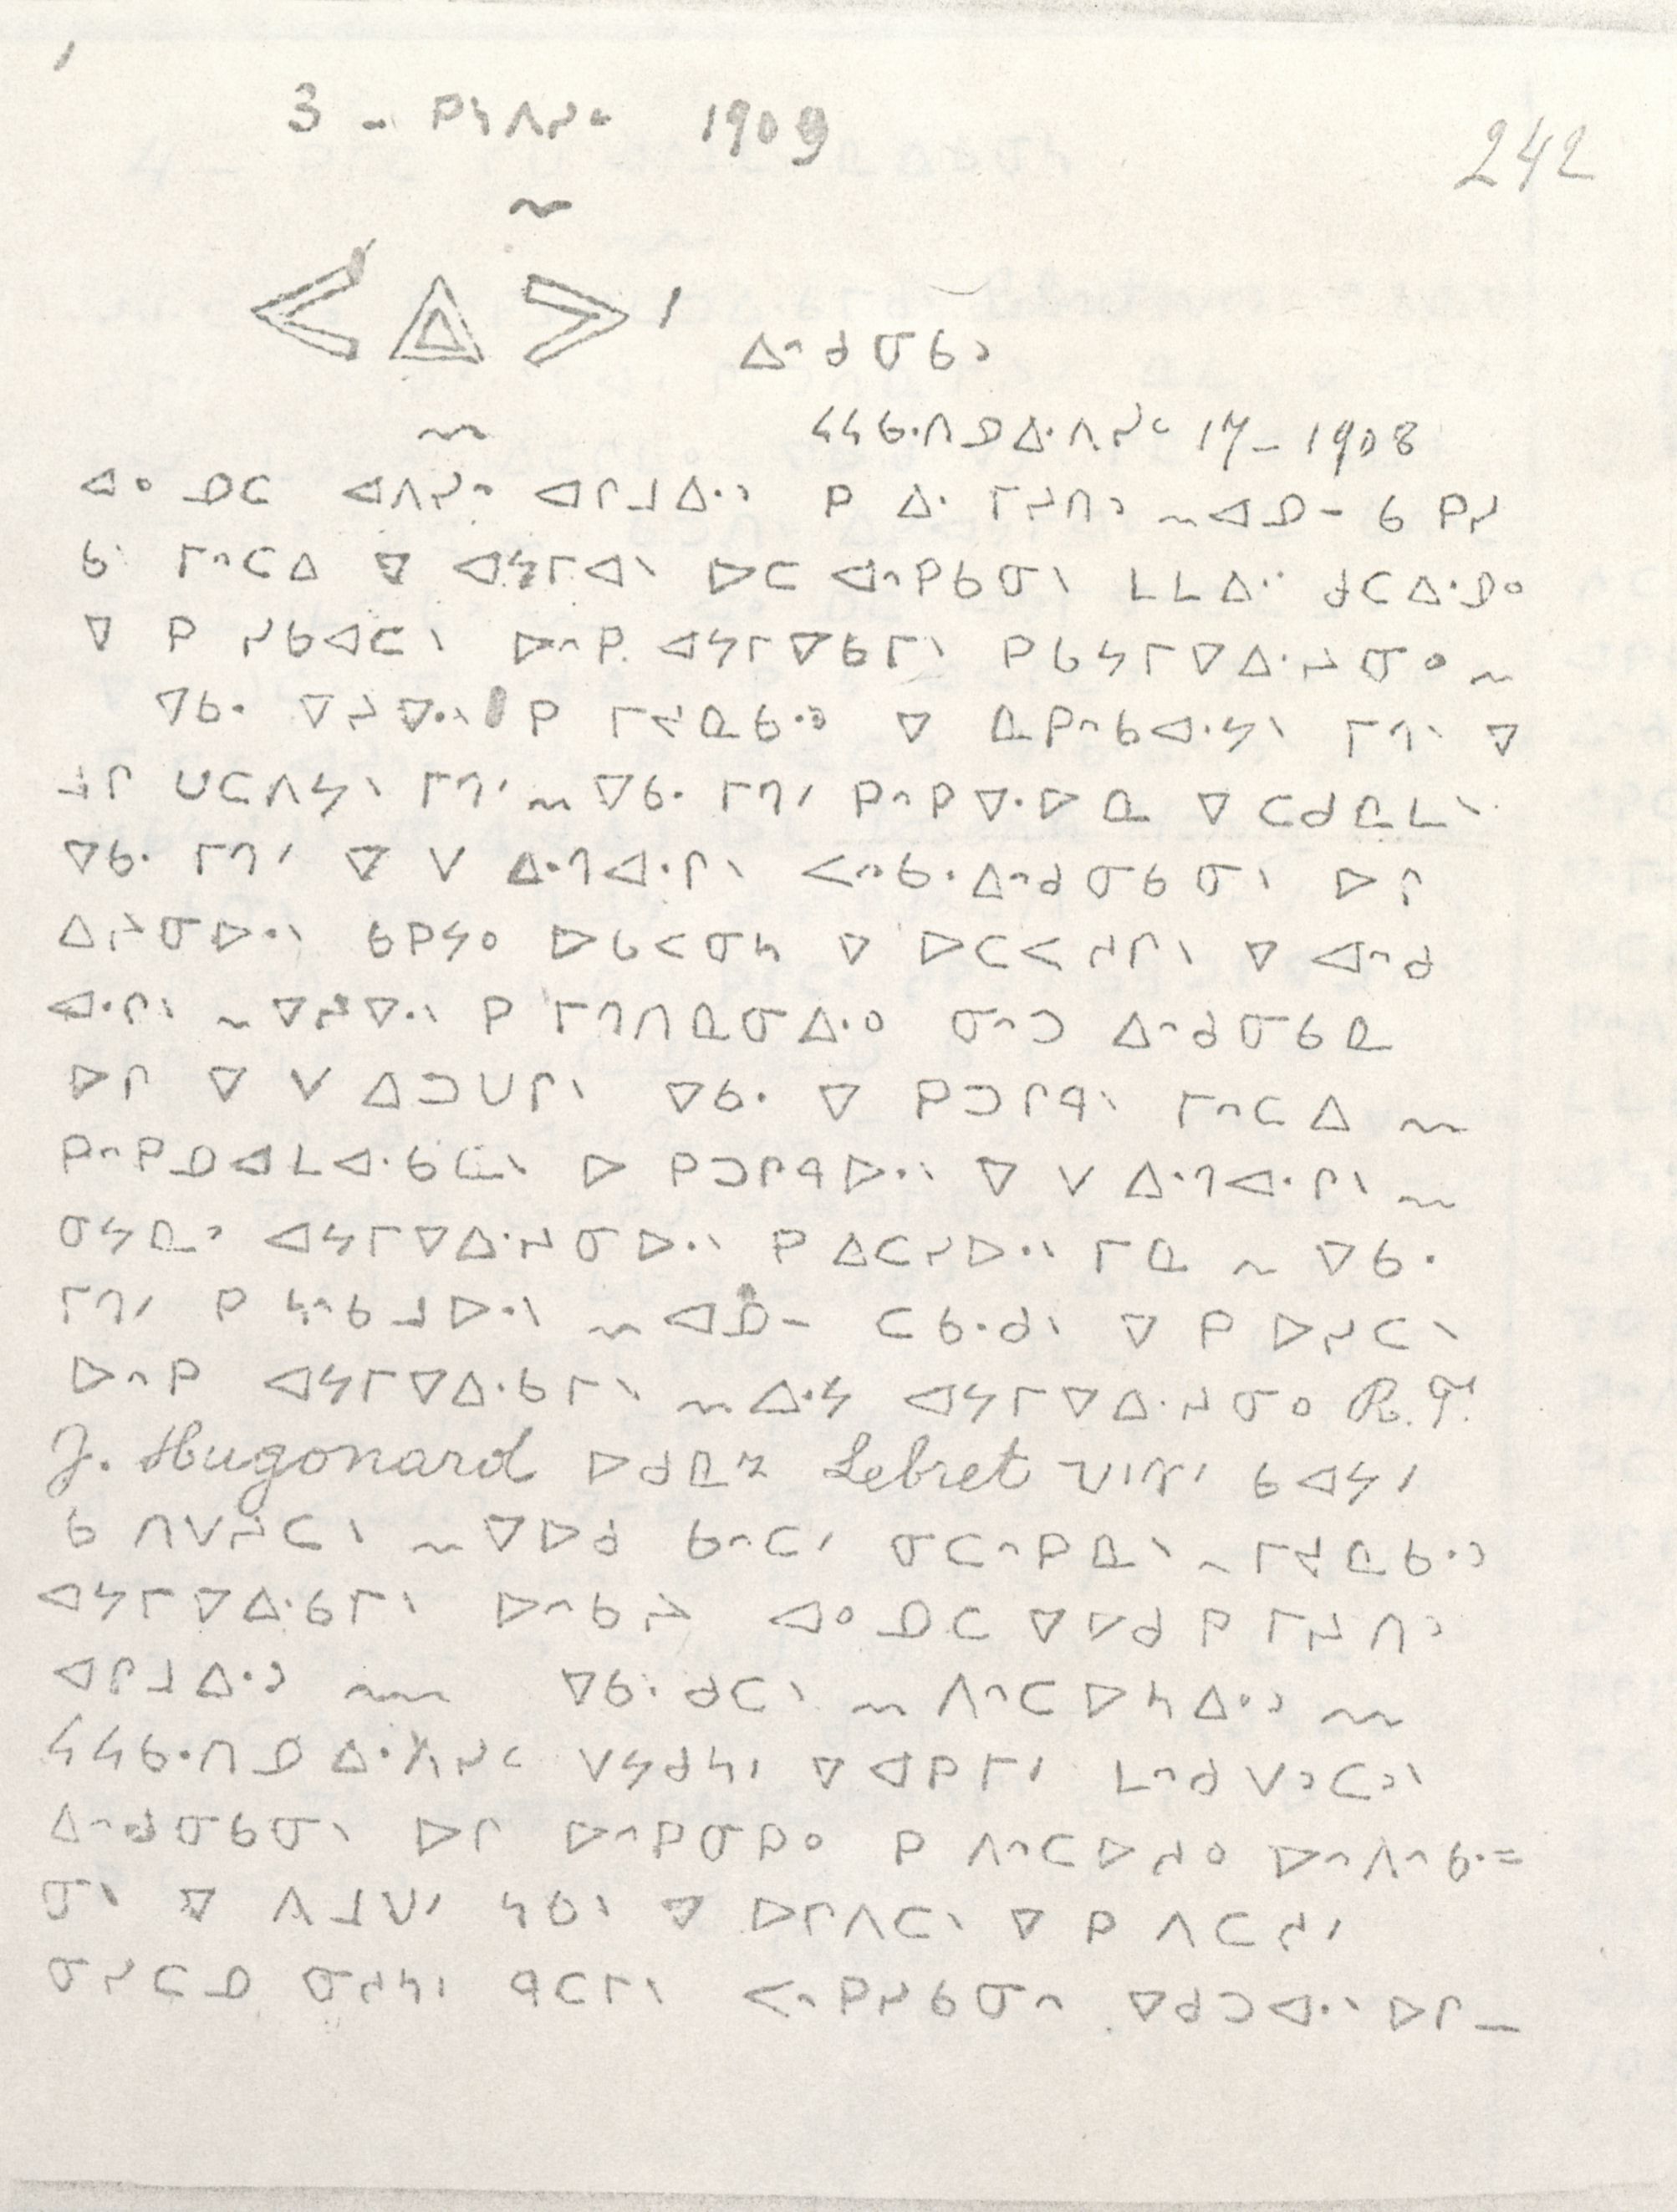 3 - ᑭᓴᐱᓯᒼ 1909
242
ᐸ ᐃ ᐳ ᐠ ᐃᐢᑯᓂᑲᐣ
ᓴᓴᑲᐧᑎᓄᐃᐧᐱᓯᒼ 17 - 1908
ᐊᐤ ᓄᑕ ᐊᐱᓯᐢ ᐊᒋᒧᐃᐧᐣ ᑭ ᐃᐧ ᒥᓯᑎᐣ ~ ᐊᓄ - ᑲ ᑭᓯ
ᑲ ᒥᐢᑕᐃ ᐁ ᐊᔭᒥᐊᐠ ᐅᑕ ᐊᐢᑭᑲᓂᐠ ᒪᒪᐃᐧ ᑯᑕᐃᐧᓄᐤ
ᐁ ᑭ ᓯᑲᐊᑕᐠ ᐅᐢᑭ ᐊᔭᒥᐁᑲᒥᐠ ᑭᑲᔭᒥᐁᐃᐧᔨᓂᐤ ~
ᐁᑲᐧ ᐁᔨᐁᐧᐠ ᑭ ᒥᔪᓇᑲᐧᐣ ᐁ ᓇᑭᐢᑲᐊᐧᔭᐠ ᒥᓀᐠ ᐁ
ᒧᒋ ᑌᑕᐱᔭᐠ ᒥᓀᐟ ~ ᐁᑲᐧ ᒥᓀᐟ ᑭᐢᑭᐁᐧᐅᓇ ᐁ ᑕᑯᓇᒪᐠ
ᐁᑲᐧ ᒥᓀᐟ ᐁ ᐯ ᐃᐧᒉᐊᐧᒋᐠ ᐸᐢᑲᐧᐃᐢᑯᓂᑲᓂᐠ ᐅᒋ
ᐃᔨᓂᐅᐧᐠ ᑲᑭᔭᐤ ᐅᑲᐸᓂᓴ ᐁ ᐅᑕᐸᓱᒋᐠ ᐁ ᐊᐢᑯ
ᐊᐧᒋᐠ ~ ᐁᔨᐁᐧᐠ ᑭ ᒥᓀᑎᓇᓂᐃᐧᐤ ᓂᐢᑐ ᐃᐢᑯᓂᑲᓇ
ᐅᒋ ᐁ ᐯ ᐃᑐᑌᒋᐠ ᐁᑲᐧ ᐁ ᑭᑐᒋᑫᐠ ᒥᐢᑕᐃ ~
ᑭᐢᑭᓄᐊᒪᐊᐧᑲᑕᐠ ᐅ ᑭᑐᒋᑫᐅᐧᐠ ᐁ ᐯ ᐃᐧᒉᐊᐧᒋᐠ ~
ᓂᔭᓇᐣ ᐊᔭᒥᐁᐃᐧᔨᓂᐅᐧᐠ ᑭ ᐃᑕᓯᐅᐧᐠ ᒥᓇ ~ ᐁᑲᐧ
ᒥᓀᐟ ᑭ ᓴᐢᑲᒧᐅᐧᐠ ~ ᐊᓄ - ᑕᑲᐧᑯᐠ ᐁ ᑭ ᐅᓯᑕᐠ
ᐅᐢᑭ ᐊᔭᒥᐁᐃᐧᑲᒥᐠ ~ ᐃᐧᔭ ᐊᔭᒥᐁᐃᐧᔨᓂᐤ R. P.
J. Hugonard ᐅᑯᓇᕁ Lebret ᑌᐟᒋᐟ ᑲᐊᔭᐟ
ᑲ ᑎᐯᔨᑕᐠ ~ ᐁᐅᑯ ᑲᐢᑕᐟ ᓂᑕᐢᑭᓇᐠ ~ ᒥᔪᓇᑲᐧᐣ
ᐊᔭᒥᐁᐃᐧᑲᒥᐠ ᐅᐢᑲᔨ ᐊᐤ ᓄᑕ ᐁᐅᑯ ᑭ ᒥᔨᑎᐣ
ᐊᒋᒧᐃᐧᐣ ~ ᐁᑲᐧ ᑯᑕᐠ ~ ᐱᐢᑕᐅᓴᐃᐧᐣ ~
ᓴᓴᑲᐧᑎᓄᐃᐧᐱᓯᒼ ᐯᔭᑯᓴᐟ ᐁ ᐊᑭᒥᐟ ᒪᐢᑯᐯᐣᑕᐣᐠ
ᐃᐢᑯᓂᑲᓂᐠ ᐅᒋ ᐅᐢᑭᓂᑭᐤ ᑭ ᐱᐢᑕᐅᓱᐤ ᐅᐢᐱᐢᑲᐧ=
ᓂᐠ ᐁ ᐱᒧᑌᐟ ᓴᑲᐠ ᐁ ᐅᒋᐱᑕᐠ ᐁ ᑭ ᐱᑕᓱᐟ
ᓂᓯᑕᓄ ᓂᓱᓴᐟ ᑫᑕᒥᐠ ᐸᐢᑭᓯᑲᓂᐢ ᐁᑯᑐᐊᐧᐠ ᐅᒋ -